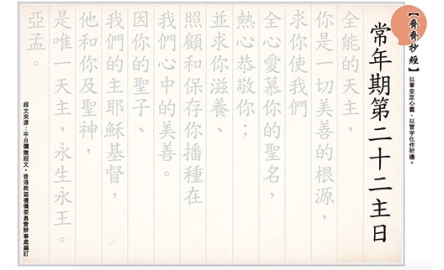 【齊齊抄經】以筆安定心靈，以習字化作祈禱。
常年期第二十二主日
全能的天主，
你是一切美善的根源，
求你使我們
全心愛慕你的聖名，
熱心恭敬你；
並求你滋養、
照顧和保存你播種在
我們心中的美善。
因你的聖子、
我們的主耶穌基督，
他和你及聖神，
是唯一天主，永生永王。
亞孟。
經文來源：平日彌撒經文。香港教區禮儀委員會辦事處編訂